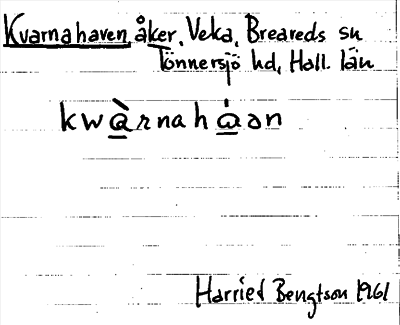 Kvarnahaven, åker, Veka, Breareds sn
Tönnersjö hd, Hall. län
kwàrnahàən
Harried Bengtson 1961